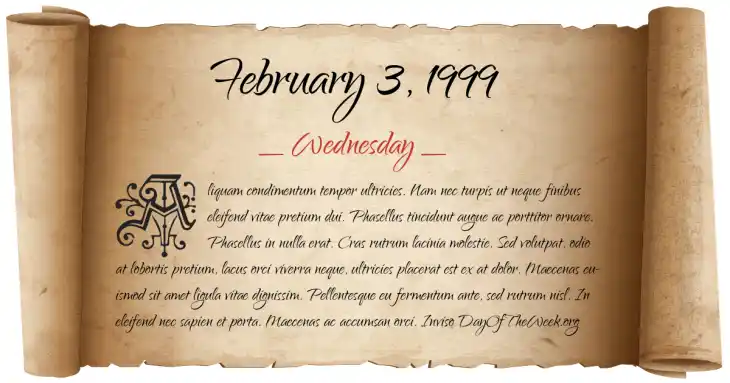 February 3, 1999
_ Wednesday _
Aliquam condimentum tempor ultricies. Nam nec turpis ut neque finibus
eleifend vitae pretium dui. Phasellus tincidunt augue ac porttitor ornare.
Phasellus in nulla erat. Cras rutrum lacinia molestie. Sed volutpat, odio
at lobortis pretium, lacus orci viverra neque, ultricies placerat est ex at dolor. Maecenas eu-
ismod sit amet ligula vitae dignissim. Pellentesque eu fermentum ante, sed rutrum nisl. In
eleifend nec sapien et porta. Maecenas ac accumsan orci. Invisq DayOfTheWeek.org